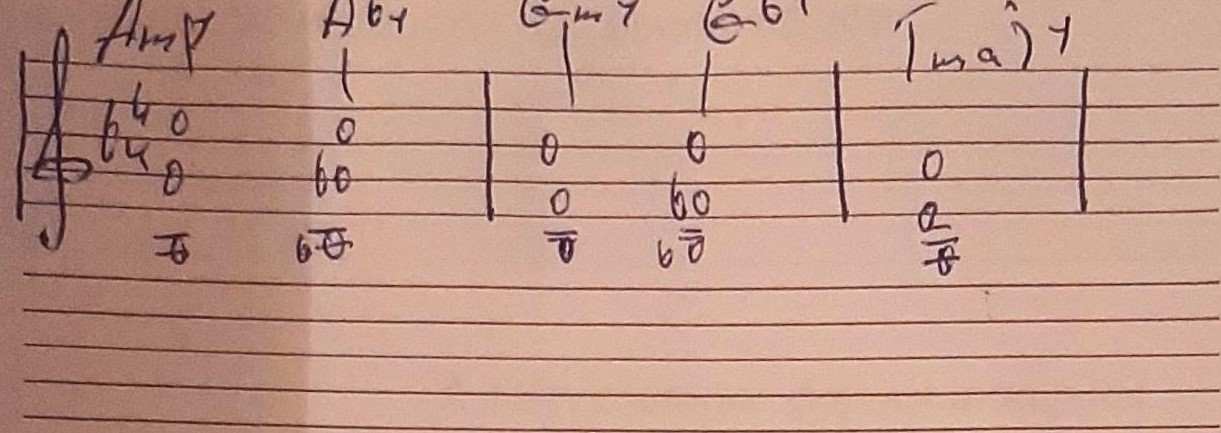 Am7 Ab7 Gm7 Gb7 Fmaj7
4
4